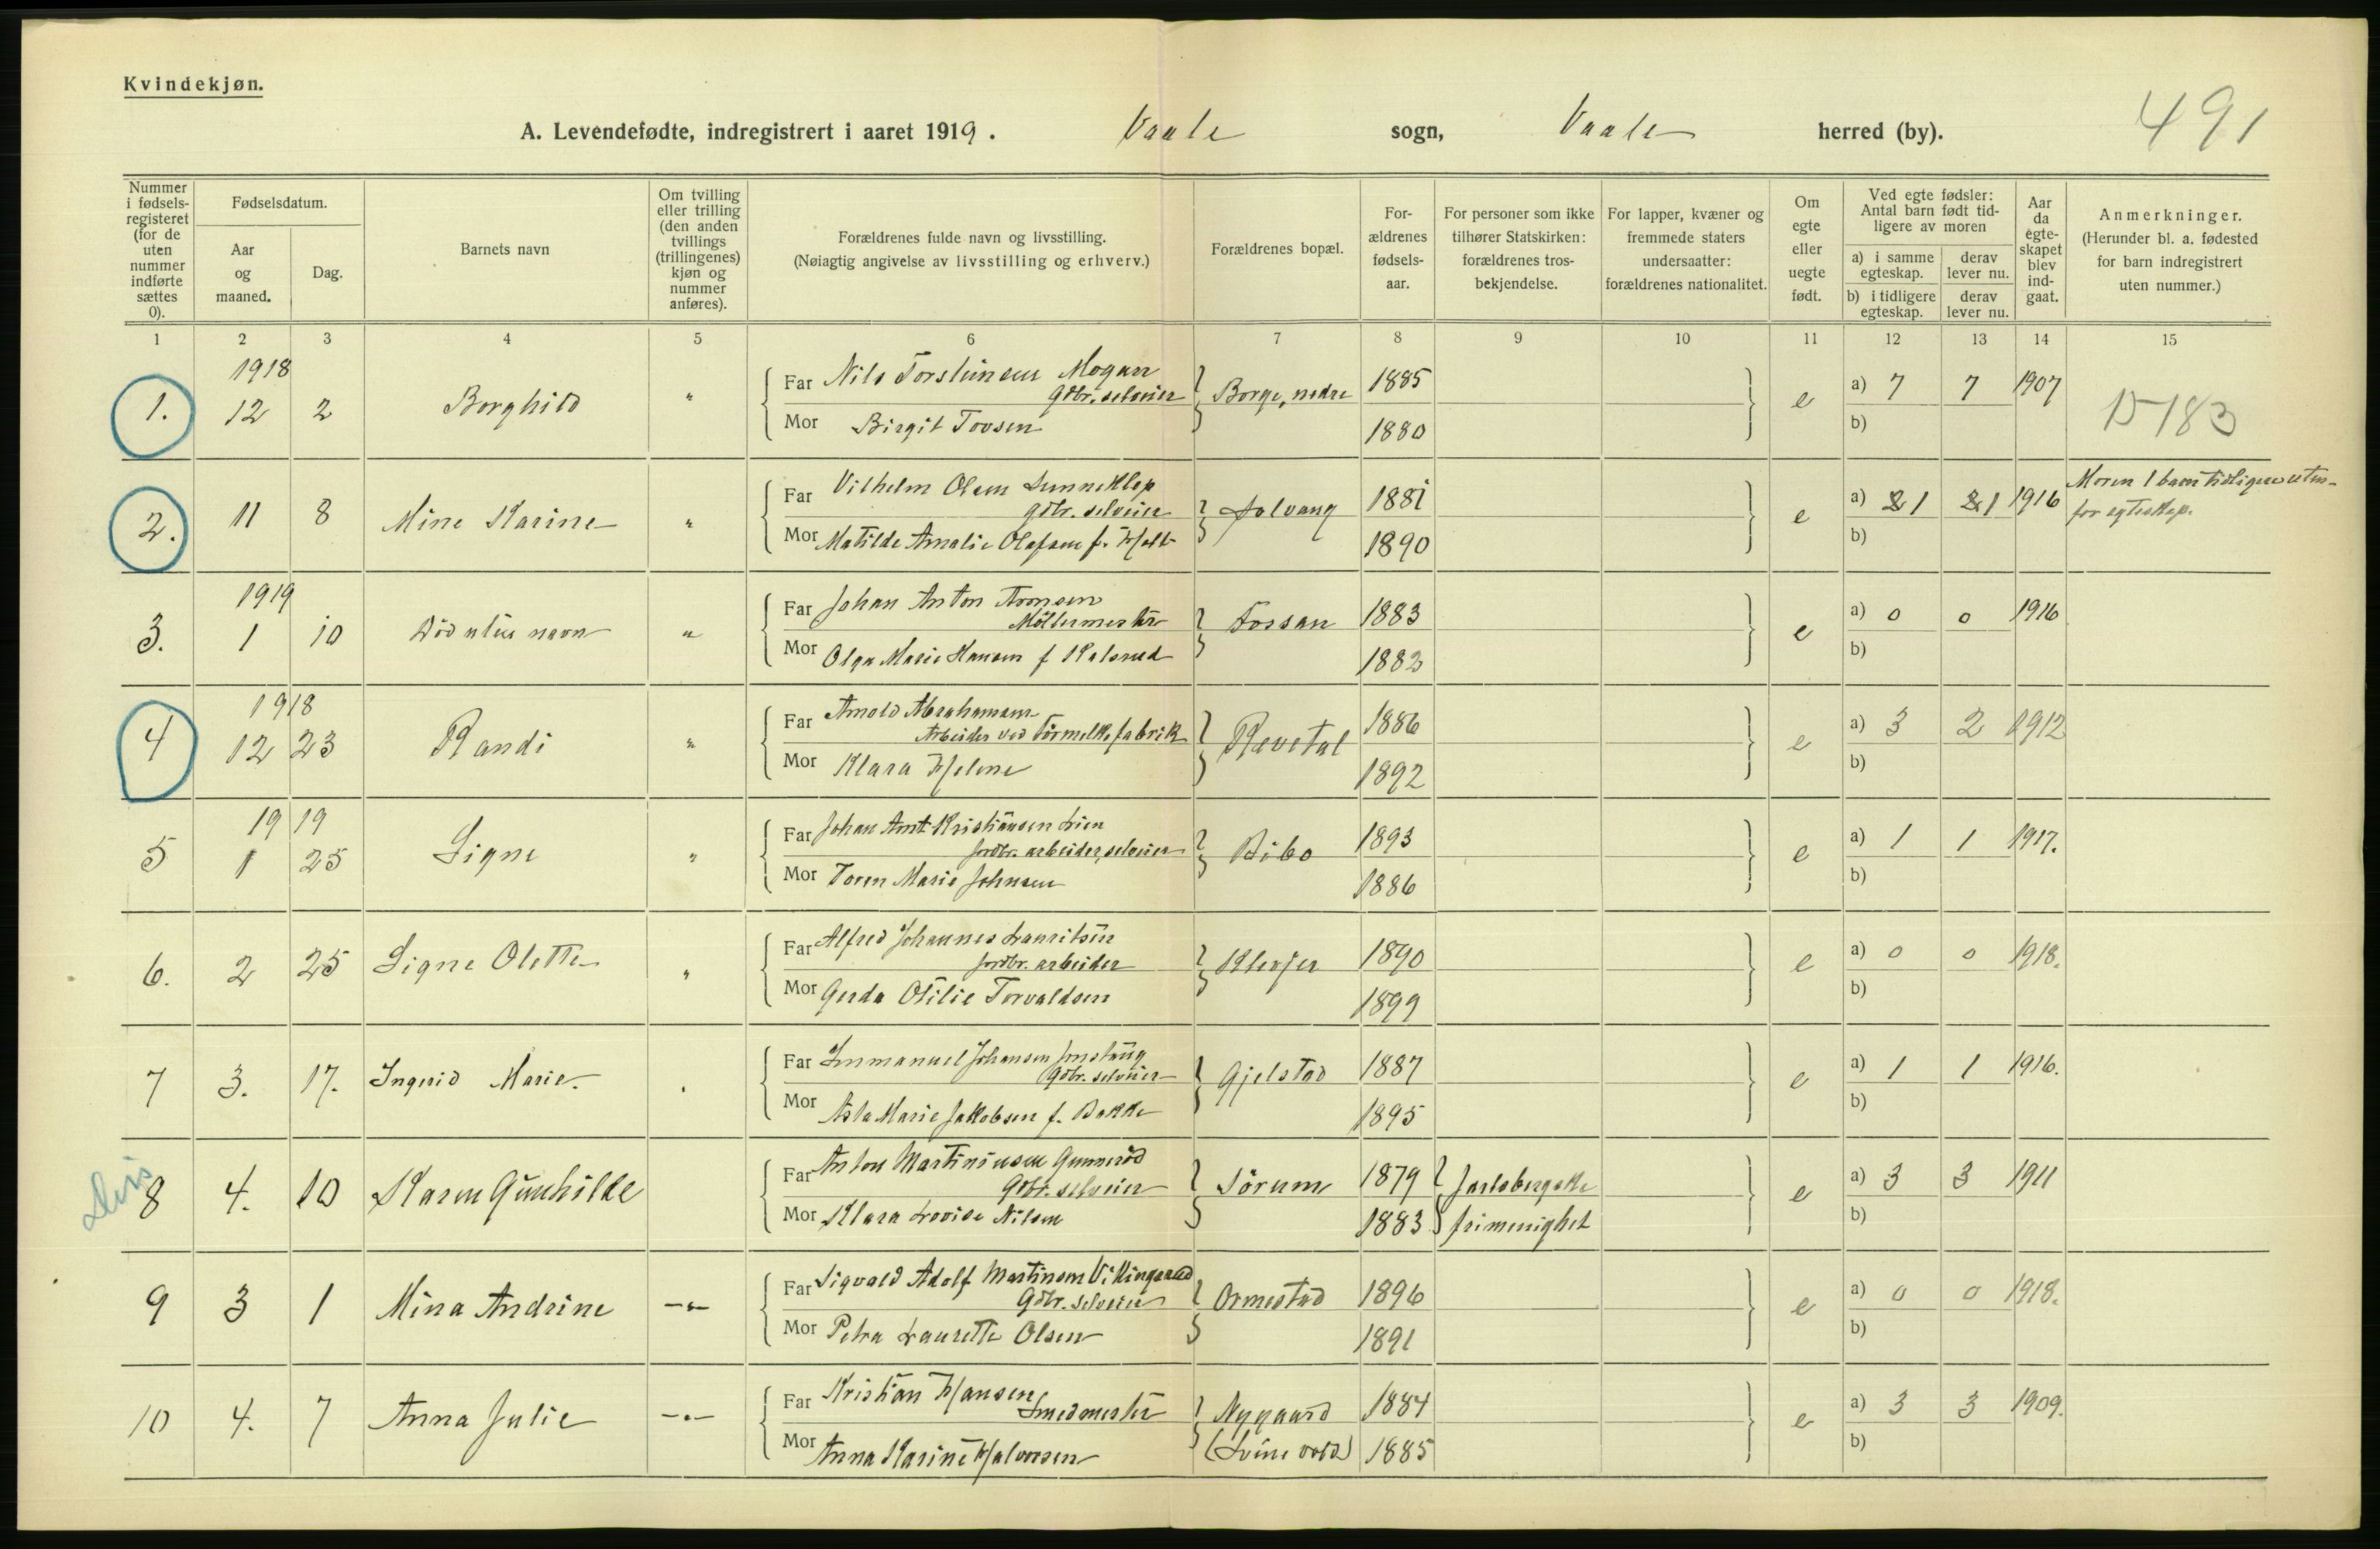 Kvindekjøn.
491
A. Levendefødte, indregistrert i aaret 1919. Vaale sogn, Vaale herred (by).
Nummer i fødsels-registeret (for de uten nummer indførte sættes 0).
Fødselsdatum.
Aar og maaned.
Dag.
Barnets navn
Om tvilling eller trilling (den anden tvillings (trillingenes) kjøn og nummer anføres).
Forældrenes fulde navn og livsstilling.
(Nøiagtig angivelse av livsstilling og erhverv.)
Forældrenes bopæl.
For-ældrenes fødsels-aar.
For personer som ikke tilhører Statskirken: forældrenes tros-bekjendelse.
For lapper, kvæner og fremmede staters undersaatter: forældrenes nationalitet.
Om egte eller uegte født.
Ved egte fødsler: Antal barn født tid-ligere av moren
a) i samme egteskap.
derav lever nu.
b) i tidligere egteskap.
derav lever nu.
Aar da egte-skapet blev ind-gaat.
Anmerkninger.
(Herunder bl. a. fødested for barn indregistrert uten nummer.)
1 2 3 4 5 6 7 8 9 10 11 12 13 14 15
1918
1. 12 2 Borghild " Far Nils Torsteinsen Mogan
Gdbr. selveier Borge, nedre 1885 e a) 7 7 1907
Mor Birgit Tovsen 1880 b)
15183
2. 11 8 Mine Karine " Far Vilhelm Olsen
gdbr. selveier Solvang 1881 e a) 1 1 1916 Moren 1 barn tidligere uten-
for egteskap.
Mor Matilde Amalie Olafsen f. Holt 1890 b)
1919
3. 1 10 Död uten navn " Far Johan Anton Aronsen
Möllermester Fossan 1883 e a) 0 0 1916
Mor Olga Marie Hansen f 1883 b)
1918
4 12 23 Randi " Far Arnold Abrahamsen
Arbeider ved Törmelksfabrik Revetal 1886 e a) 3 2 1912
Mor Klara Helene 1892 b)
1919
5 1 25 Signe " Far Johan Ant. Kristiansen Lien
jordbr. arbeider, selveier Bibo 1893 e a) 1 1 1917.
Mor Toren Marie Johnsen 1886 b)
6. 2 25 Signe Olette " Far Alfred Johannes Lauritsen
jordbr. arbeider Klevjer 1890 e a) 0 0 1918.
Mor Gerda Otilie Torvaldsen 1899 b)
7 3. 17. Ingerid Marie. Far Emmanuel Johansen
Gdbr. selveier Gjelstad 1887 e a) 1 1 1916.
Mor Asta Marie Jakobsen f. Bakke 1895 b)
8 4. 10 Karen Gunhilde Far Anton Martinsen Gunneröd
Gdbr. selveier Sörum 1879 Jarlsbergske e a) 3 3 1911
Mor Klara Lovise Nilsen 1883 frimenighet b)
9 3 1 Mina Andrine -"- Far Sigvald Adolf Martinsen Vikingsrød
Gdbr. selveier Ormestad 1896 e a) 0 0 1918.
Mor Petra Laurette Olsen 1891 b)
10 4. 7 Anna Julie -"- Far Kristian Hansen
Smedmester Nygaard 1884 e a) 3 3 1909.
Mor Anna Karine Halvorsen (Svinevold) 1885 b)